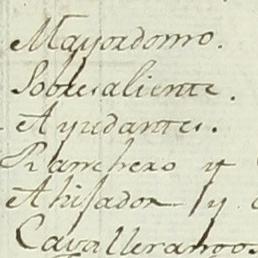 Mayordomo.
Sobresaliente.
Ayudantes.
Ranchero y
Ahijador y
Cavallerangos.